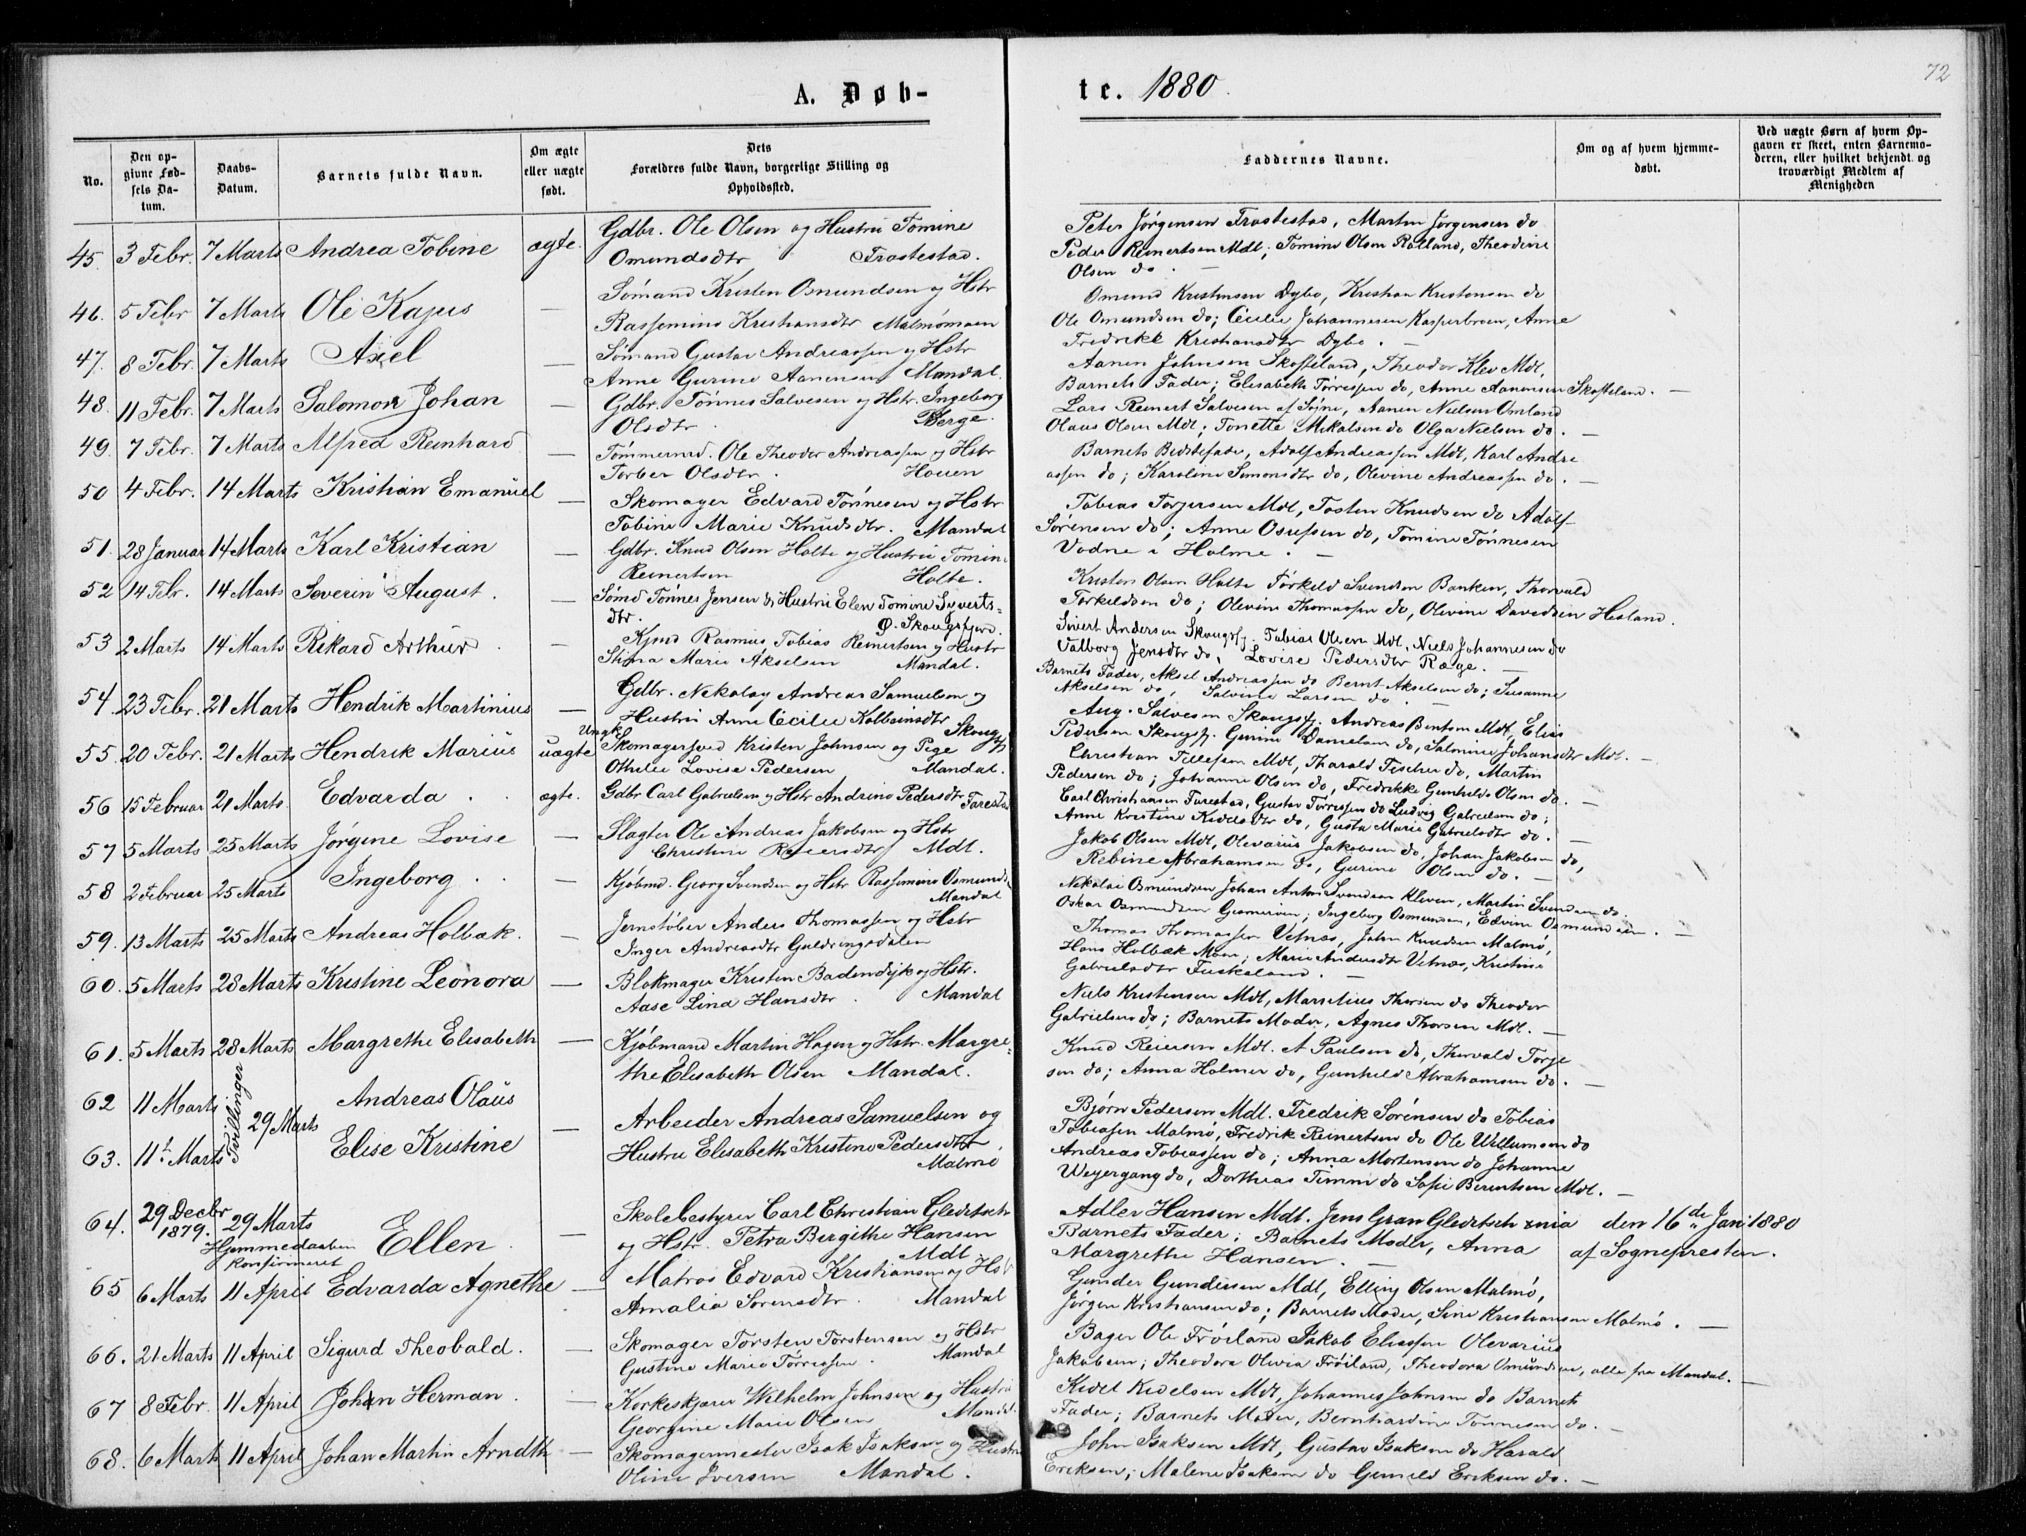 A. Døb-
te. 1880
72
No.
Den op-
givne Fød-
sels Da-
tum.
Daabs-
Datum.
Barnets fulde Navn.
Om ægte
eller uægte
født.
Dets
Forældres fulde Navn, borgerlige Stilling og
Opholdssted.
Faddernes Navne.
Om og af hvem hjemme-
døbt.
Ved uægte Børn af hvem Op-
gaven er skeet, enten Barnemo-
deren, eller hvilket bekjendt og
troværdigt Medlem af
Menigheden
45. 3 Febr. 7 Marts Andrea Tobine ægte. Gdbr. Ole Olsen og Hustru Tomine
Omundsdtr Frostestad.
Peter Jørgensen Frostestad, Martin Jørgensen do
Peder Reinertsen Mdl; Tomine Olsen Rolland, Theodine
Olsen do. —
46. 5 Febr 7 Marts Ole Kajus — Sømand Kristen Osmundsen og Hstr
Rassemine Kristiansdtr Malmømoen
Omund Kristensen Dybo, Kristian Kristensen do
Ole Omundsen do; Cecilie Johannesen Kasperbroen, Anne
Fredrikke Kristiansdtr Dybo. —
47. 8 Febr. 7 Marts Axel — Sømand Gustav Andreassen og Hstr
Anne Gurine Aanensen Mandal.
Aanen Johnsen Skofteland, Theodor Klev Mdl,
Barnets Fader; Elisabeth Tørresen do, Anne Aanensen Skofteland. —
48. 11 Febr. 7 Marts Salomon Johan — Gdbr. Tønnes Salvesen og Hstr. Ingeborg
Olsdtr. Berge.
Lars Reinert Salvesen af Søgne, Aanen Nielsen Omland
Olaus Olsen Mdl; Tonette Mikalsen do Olga Nielsen do. —
49. 7 Febr. 7 Marts Alfred Reinhard — Tømmermd. Ole Theodor Andreassen og Hstr
Torber Olsdtr. Houen
Barnets Bedstefader, Adolf Andreassen Mdl, Karl Andre
assen do; Karoline Simonsdtr do, Olevine Andreassen do. —
50 4 Febr. 14 Marts Kristian Emanuel — Skomager Edvard Tønnesen og Hstr
Tobine Marie Knudsdtr. Mandal
Tobias Torjersen Mdl, Tosten Knudsen do Adolf
Sørensen do; Anne Osufsen do, Tomine Tønnesen
Vodne i Holme. —
51. 28 Januar 14 Marts Karl Kristian — Gdbr. Knud Olsen Holte og Hustru Tomine
Reinertsen Holte.
Kristen Olsen Holte Tørkeld Svendsen Banken, Thorvald
Torkeldsen do; Olevine Thomassen do, Olevine Davidsen Hesland.
52 14 Febr. 14 Marts Severin August. — Sømd Tønnes Jensen og Hustru Elen Tomine Syverts-
dtr. Ø. Skougsfjerd.
Sivert Andersen Skougsfj. Tobias Olsen Mdl. Niels Johannesen do
Valborg Jensdtr do, Lovise Pedersdtr Ræge. —
53 2 Marts 14 Marts Rikard Arthur. — Kjmd Rasmus Tobias Reinertsen og Hustr
Stina Marie Akselsen Mandal.
Barnets Fader, Aksel Andreassen do Bernt Akselsen do; Susanne
Akselsen do, Salvine Larsen do. —
54. 23 Febr. 21 Marts Hendrik Martinius — Gdbr. Nekolay Andreas Samuelsen og
Hustru Anne Cecilie Kolbeinsdtr Skougsfj
Aug. Salvesen Skougsfj. Andreas Bentsen Mdl, Elias
Pedersen Skougsfj. Gurine Danielsen do, Salmine Johansdtr Mdl. —
55. 20 Febr. 21 Marts Hendrik Marius uægte Ungk. Skomagersved Kristen Johnsen og Pige
Othilie Lovise Pedersen Mandal.
Christian Tellefsen Mdl, Tharald Fischer do, Martin
Pedersen do; Johanne Olsen do, Fredrikke Gunhilde Olsen do. —
56 15 Februar 21 Marts. Edvarda. ægte. Gdbr Carl Gabrielsen og Hstr Andrine Pedersdtr Farestad
Carl Christiansen Farestad, Gustav Tørressen do Ludvig Gabrielsen do;
Anne Kristine Kidelsdtr do, Gusta Marie Gabrielsdtr do. —
57 5 Marts 25 Marts Jørgine Lovise — Slagter Ole Andreas Jakobsen og Hstr
Christine Reiersdtr Mdl.
Jakob Olsen Mdl, Olevarius Jakobsen do, Johan Jakobsen do,
Rebine Abrahamsen do, Gurine Olsen do. —
58 2 Februar 25 Marts Ingeborg. — Kjøbmd. Georg Svendsen og Hstr Rassemine Osmunds.
Mandal
Nekolai Osmundsen Johan Anton Svendsen Kleven, Martin Svendsen do.
Oskar Osmundsen Gismerøen; Ingeborg Osmundsen, Edvine Osmundsen. —
59. 13 Marts 25 Marts Andreas Holbæk. — Jernstøber Anders Thomassen og Hstr
Inger Andreasdtr Guldringsdalen
Thomas Thomassen Vetnæs, John Knudsen Malmø,
Hans Holbæk Moen; Marie Andersdtr Vetnæs, Kristine
Gabrielsdtr Fuskeland. —
60. 5 Marts 28 Marts Kristine Leonora — Blokmager Kristen Badendyk og Hstr.
Aase Lina Hansdtr. Mandal
Niels Kristensen Mdl, Marselius Thorsen do Theodor
Gabrielsen do; Barnets Moder, Agnes Thorsen Mdl. —
61. 5 Marts 28 Marts Margrethe Elisabeth — Kjøbmand Martin Hagen og Hstr. Margre-
the Elisabeth Olsen Mandal.
Knud Reiersen Mdl. A Paulsen do, Thorvald Torge
sen do; Anna Holmer do, Gunhild Abrahamsen do. —
62 11 Marts Andreas Olaus
Tvillinger 29 Marts
63. 11te Marts Elise Kristine — Arbeider Andreas Samuelsen og
Hustru Elisabeth Kristine Pedersdtr
Malmø
Bjørn Pedersen Mdl. Fredrik Sørensen do Tobias
Tobiassen Malmø, Fredrik Reinertsen do Ole Willumsen do
Andreas Tobiassen do; Anna Mortensen do Johanne
Weyergang do, Dorthea Timm do Sofie Berentsen Mdl. —
64. 29 Decbr 1879. 29 Marts Ellen. — Skolebestyrer Carl Christian Gleditsch
Hjemmedaaben
konfirmeret
og Hstr. Petra Bergithe Hansen
Mdl
Adler Hansen Mdl. Jens Gran Gleditsch xnia den 16de Jan: 1880
Barnets Fader; Barnets Moder, Anna af Sognepresten.
Margrethe Hansen. —
65 6 Marts 11 April Edvarda Agnethe — Matros Edvard Kristiansen og Hst
Amalia Sørensdtr. Mandal
Gunder Gundersen Mdl, Elling Olsen Malmø,
Jørgen Kristiansen do; Barnets Moder, Sine Kristiansen Malmø. —
66. 21 Marts 11 April Sigurd Theobald. — Skomager Torsten Torstensen og Hstr
Gustine Marie Tørressen. Mandal
Bager Ole Frøiland Jakob Eliassen Olevarius
Jakobsen; Theodora Olivia Frøiland, Theodora Omundsen, alle fra Mandal. —
67 8 Febr. 11 April Johan Herman. — Korkeskjærer Wilhelm Johnsen og Hustru
Georgine Marie Olsen Mandal.
Kidel Kidelsen Mdl, Johannes Johnsen do Barnets
Fader; Barnets Moder, Bernhardine Tønnesen do. —
68. 6 Marts 11 April Johan Martin Arndth — Skomagermester Isak Isaksen og Hustru
Oline Iversen Mandal.
John Isaksen Mdl, Gustav Isaksen do Harald
Eriksen; Malene Isaksen do Gunild Eriksen do. —